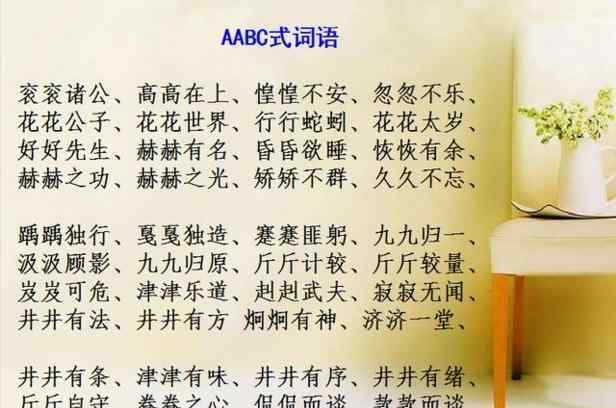 AABC式词语
衮衮诸公、高高在上、惶惶不安、忽忽不乐、
花花公子、花花世界、行行蛇蚓、花花太岁、
好好先生、赫赫有名、昏昏欲睡、恢恢有余、
赫赫之功、赫赫之光、矫矫不群、久久不忘、
踽踽独行、戛戛独造、蹇蹇匪躬、九九归一、
汲汲顾影、九九归原、斤斤计较、斤斤较量、
岌岌可危、津津乐道、赳赳武夫、寂寂无闻、
井井有法、井井有方 炯炯有神、济济一堂、
井井有条、津津有味、井井有序、井井有绪、
斤斤自守、眷眷之心、侃侃而谈、款款而谈、